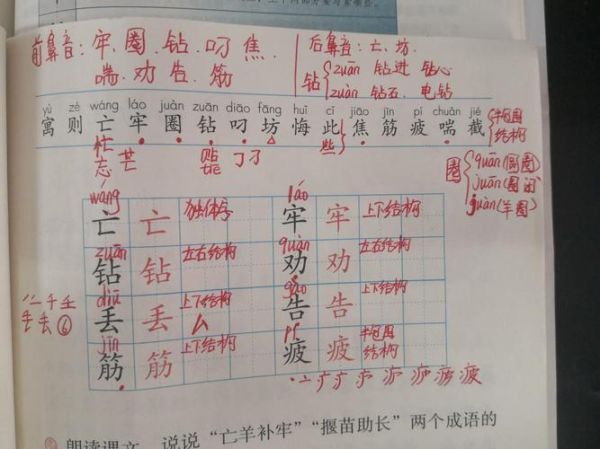 前鼻音：牢、圈、钻、叼、焦、
喘、劝、告、筋
后鼻音：亡、坊
钻
zuān 钻进 钻心
zuàn 钻石、电钻
yù zé wáng láo juàn zuān diāo fāng huǐ cǐ jiāo jīn pí chuǎn jié
寓则亡牢圈钻叼坊悔此焦筋疲喘截
半包围
结构
忙
忘
芒
些
刁
圈
quān(圆圈)
juān(圈闭)
juàn(羊圈)
wáng
亡 亡 独体字
láo
牢 牢 上下结构
zuān
钻 钻 左右结构
quàn
劝 劝 左右结构
diū
丢 丢 上下结构
gào
告 告 上下结构
丢丢⑥
jīn
筋 筋 上下结构
pí
疲 疲 半包围
结构
朗读课文，说说“亡羊补牢”“揠苗助长”两个成语的